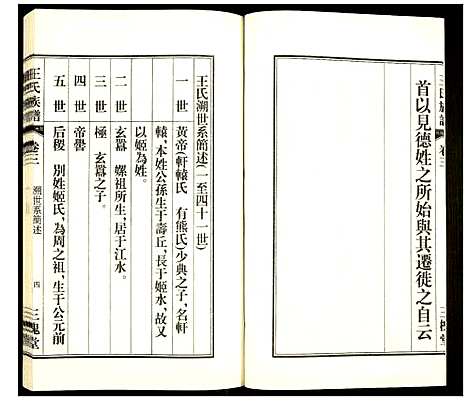 首以見德姓之所始與其遷徙之自云
王氏溯世系簡述(一至四十一世)
一世 黃帝(軒轅氏 有熊氏)少典之子,名軒
轅,本姓公孫生于壽丘,長于姬水,故又
以姬為姓。
二世 玄囂 嫘祖所生,居于江水。
三世 極 玄囂之子。
四世 帝嚳
五世 后稷 別姓姬氏,為周之祖,生于公元前
王氏族譜 卷三 溯世系簡述 四 三槐堂